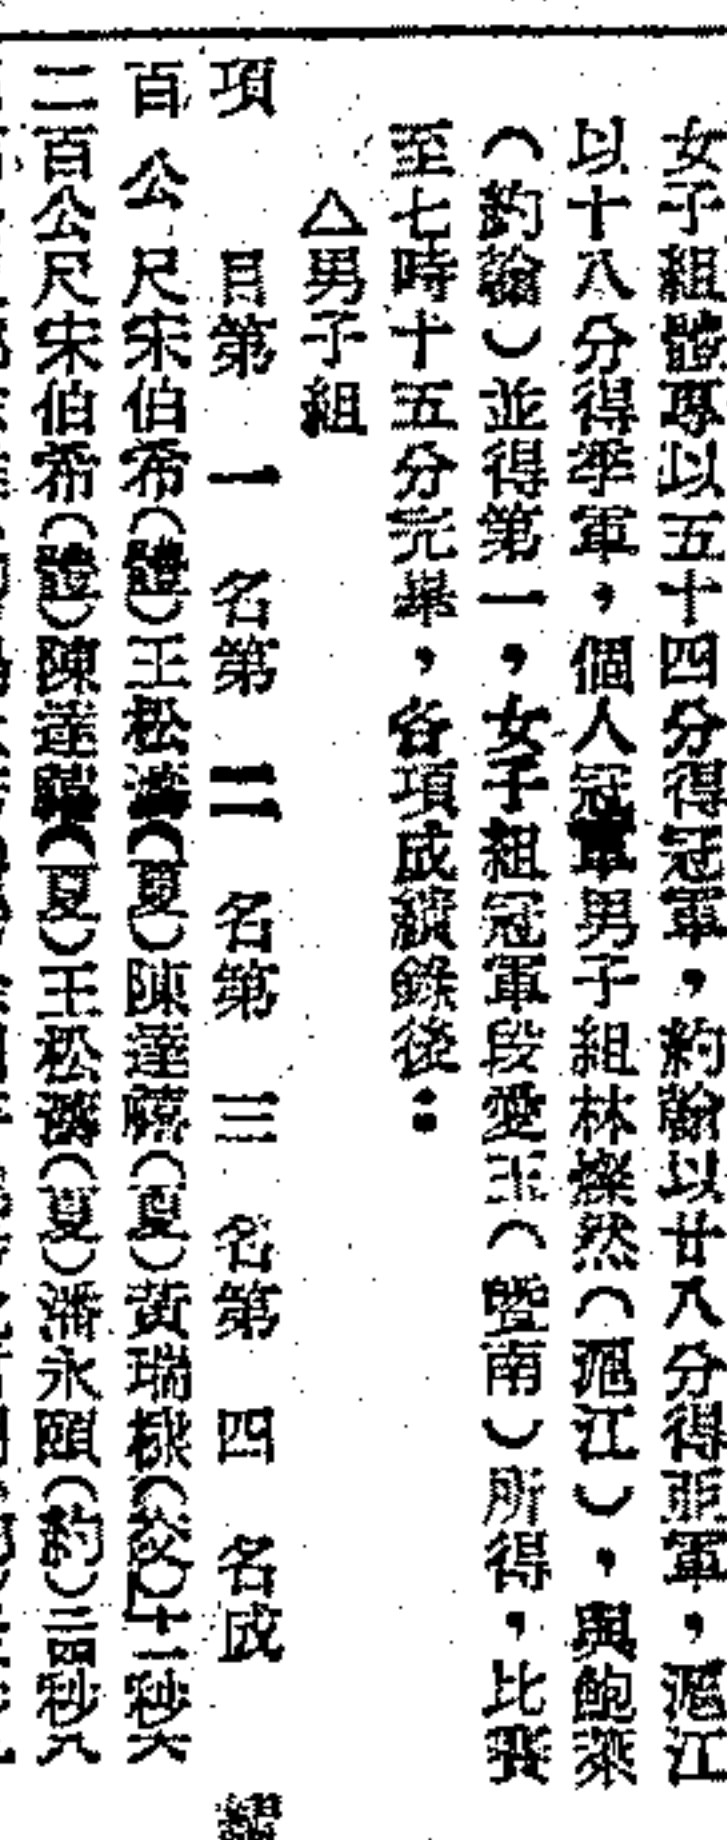 女子組體專以五十四分得冠軍，約翰以廿八分得亞軍，滬江
以十八分得季軍，個人冠軍男子組林燦然（滬江），與鮑萊
（約翰）並得第一，女子組冠軍段愛玉（暨南）所得，比賽
至七時十五分完畢，各項成績錄後：
△男子組
項目第一名第二名第三名第四名成績
百公尺宋伯希（體）王松濤（夏）陳達（夏）黃瑞（交）十一秒六
二百公尺宋伯希（體）陳達（夏）王松濤（夏）潘永頤（約）二四秒八